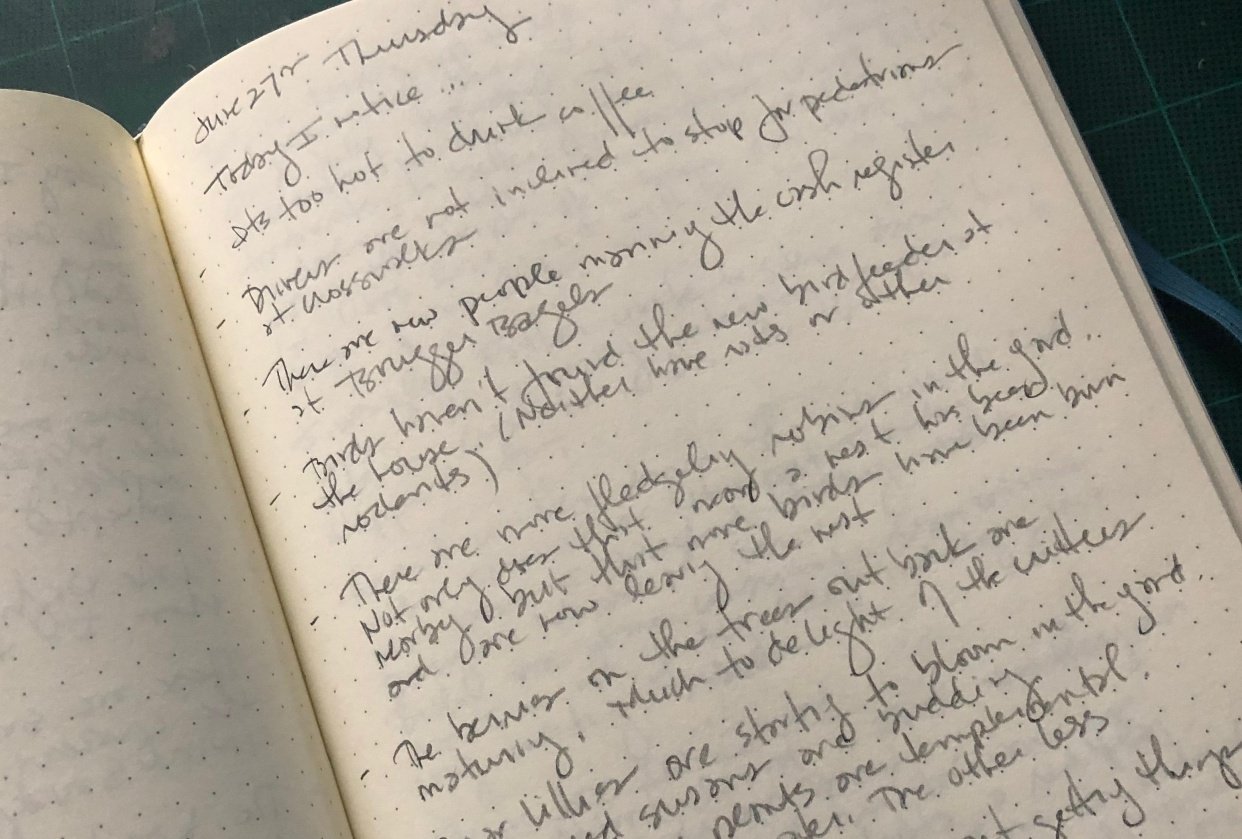 June 27th Thursday
Today I notice ...
- Its too hot to drink coffee
- Drivers are not inclined to stop for pedestrians
at crosswalks
- There are new people manning the cash register
at Brugger Bagels
- Birds haven't found the new birdfeeder at
the house. (Neither have rats or other
rodents)
- There are more fledgeling robins in the yard.
Not only does that mean a nest has been
nearby but that more birds have been born
and are now leaving the nest
- The berries on the trees out back are
maturing. Much to delight of the critters
lillies are starting to bloom in the yard.
susans are budding
permits are templemental.
The other less
getting things